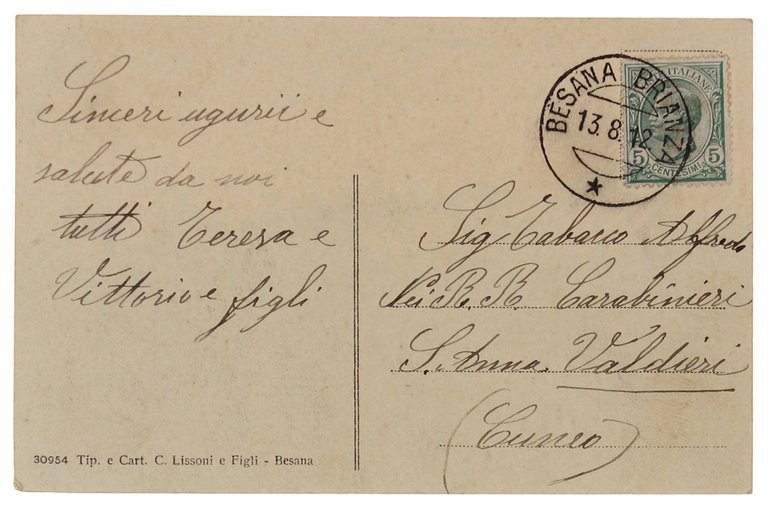 Sinceri ugurii e
salute da noi
tutti Teresa e
Vittorio e figli
30954 Tip. e Cart. C. Lissoni e Figli - Besana
BESANA BRIANZA
13.8.12
ITALIANE
5 CENTESIMI 5
Sig Tabacco Alfredo
Nei R. R. Carabinieri
S. Anna Valdieri
(Cuneo)